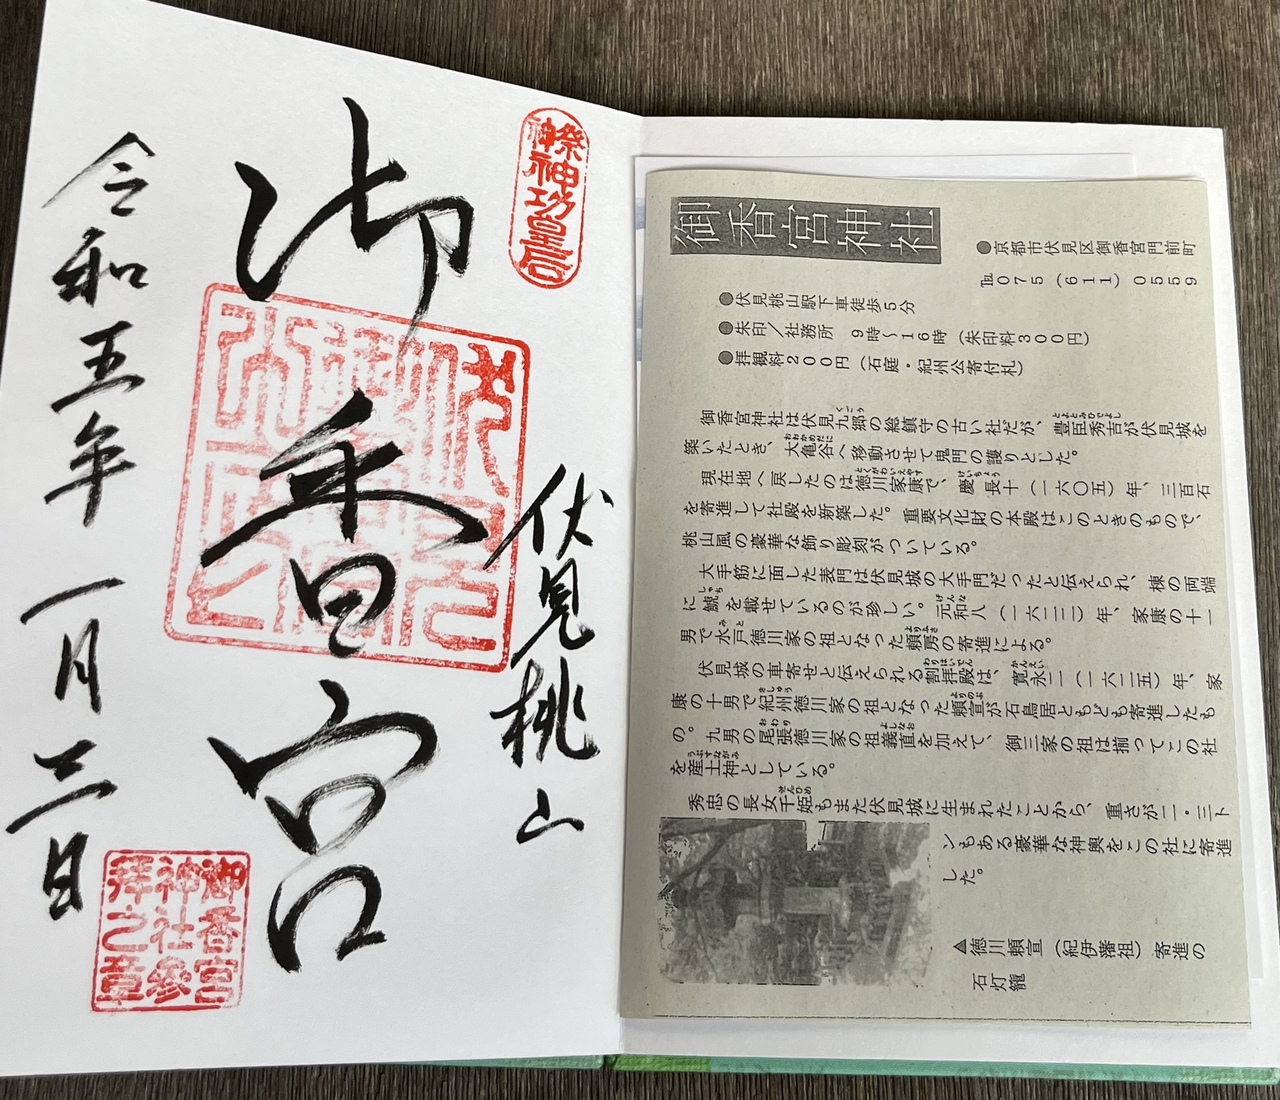 祭神
神功皇后
伏見桃山
御香宮
令和五年一月三日
御香宮
神社參
拝之章
御香宮神社
●京都市伏見区御香宮門前町
℡075(611)0559
●伏見桃山駅下車徒歩5分
●朱印/社務所 9時~16時(朱印料300円)
●拝観料200円(石庭・紀州公寄付札)
御香宮神社は伏見九郷の総鎮守の古い社だが、豊臣秀吉が伏見城を
築いたとき、大亀谷へ移動させて鬼門の護りとした。
現在地へ戻したのは徳川家康で、慶長十(一六〇五)年、三百石
を寄進して社殿を新築した。重要文化財の本殿はこのときのもので、
桃山風の豪華な飾り彫刻がついている。
大手筋に面した表門は伏見城の大手門だったと伝えられ、棟の両端
に鯱を載せているのが珍しい。元和八(一六二二)年、家康の十一
男で水戸徳川家の祖となった頼房の寄進による。
伏見城の車寄せと伝えられる割拝殿は、寛永二(一六二五)年、家
康の十男で紀州徳川家の祖となった頼宣が石鳥居ともども寄進したも
の。九男の尾張徳川家の祖義直を加えて、御三家の祖は揃ってこの社
を産土神としている。
秀忠の長女千姫もまた伏見城に生まれたことから、重さが二・三ト
ンもある豪華な神輿をこの社に寄進
した。
▲徳川頼宣(紀伊藩祖)寄進の
石灯籠